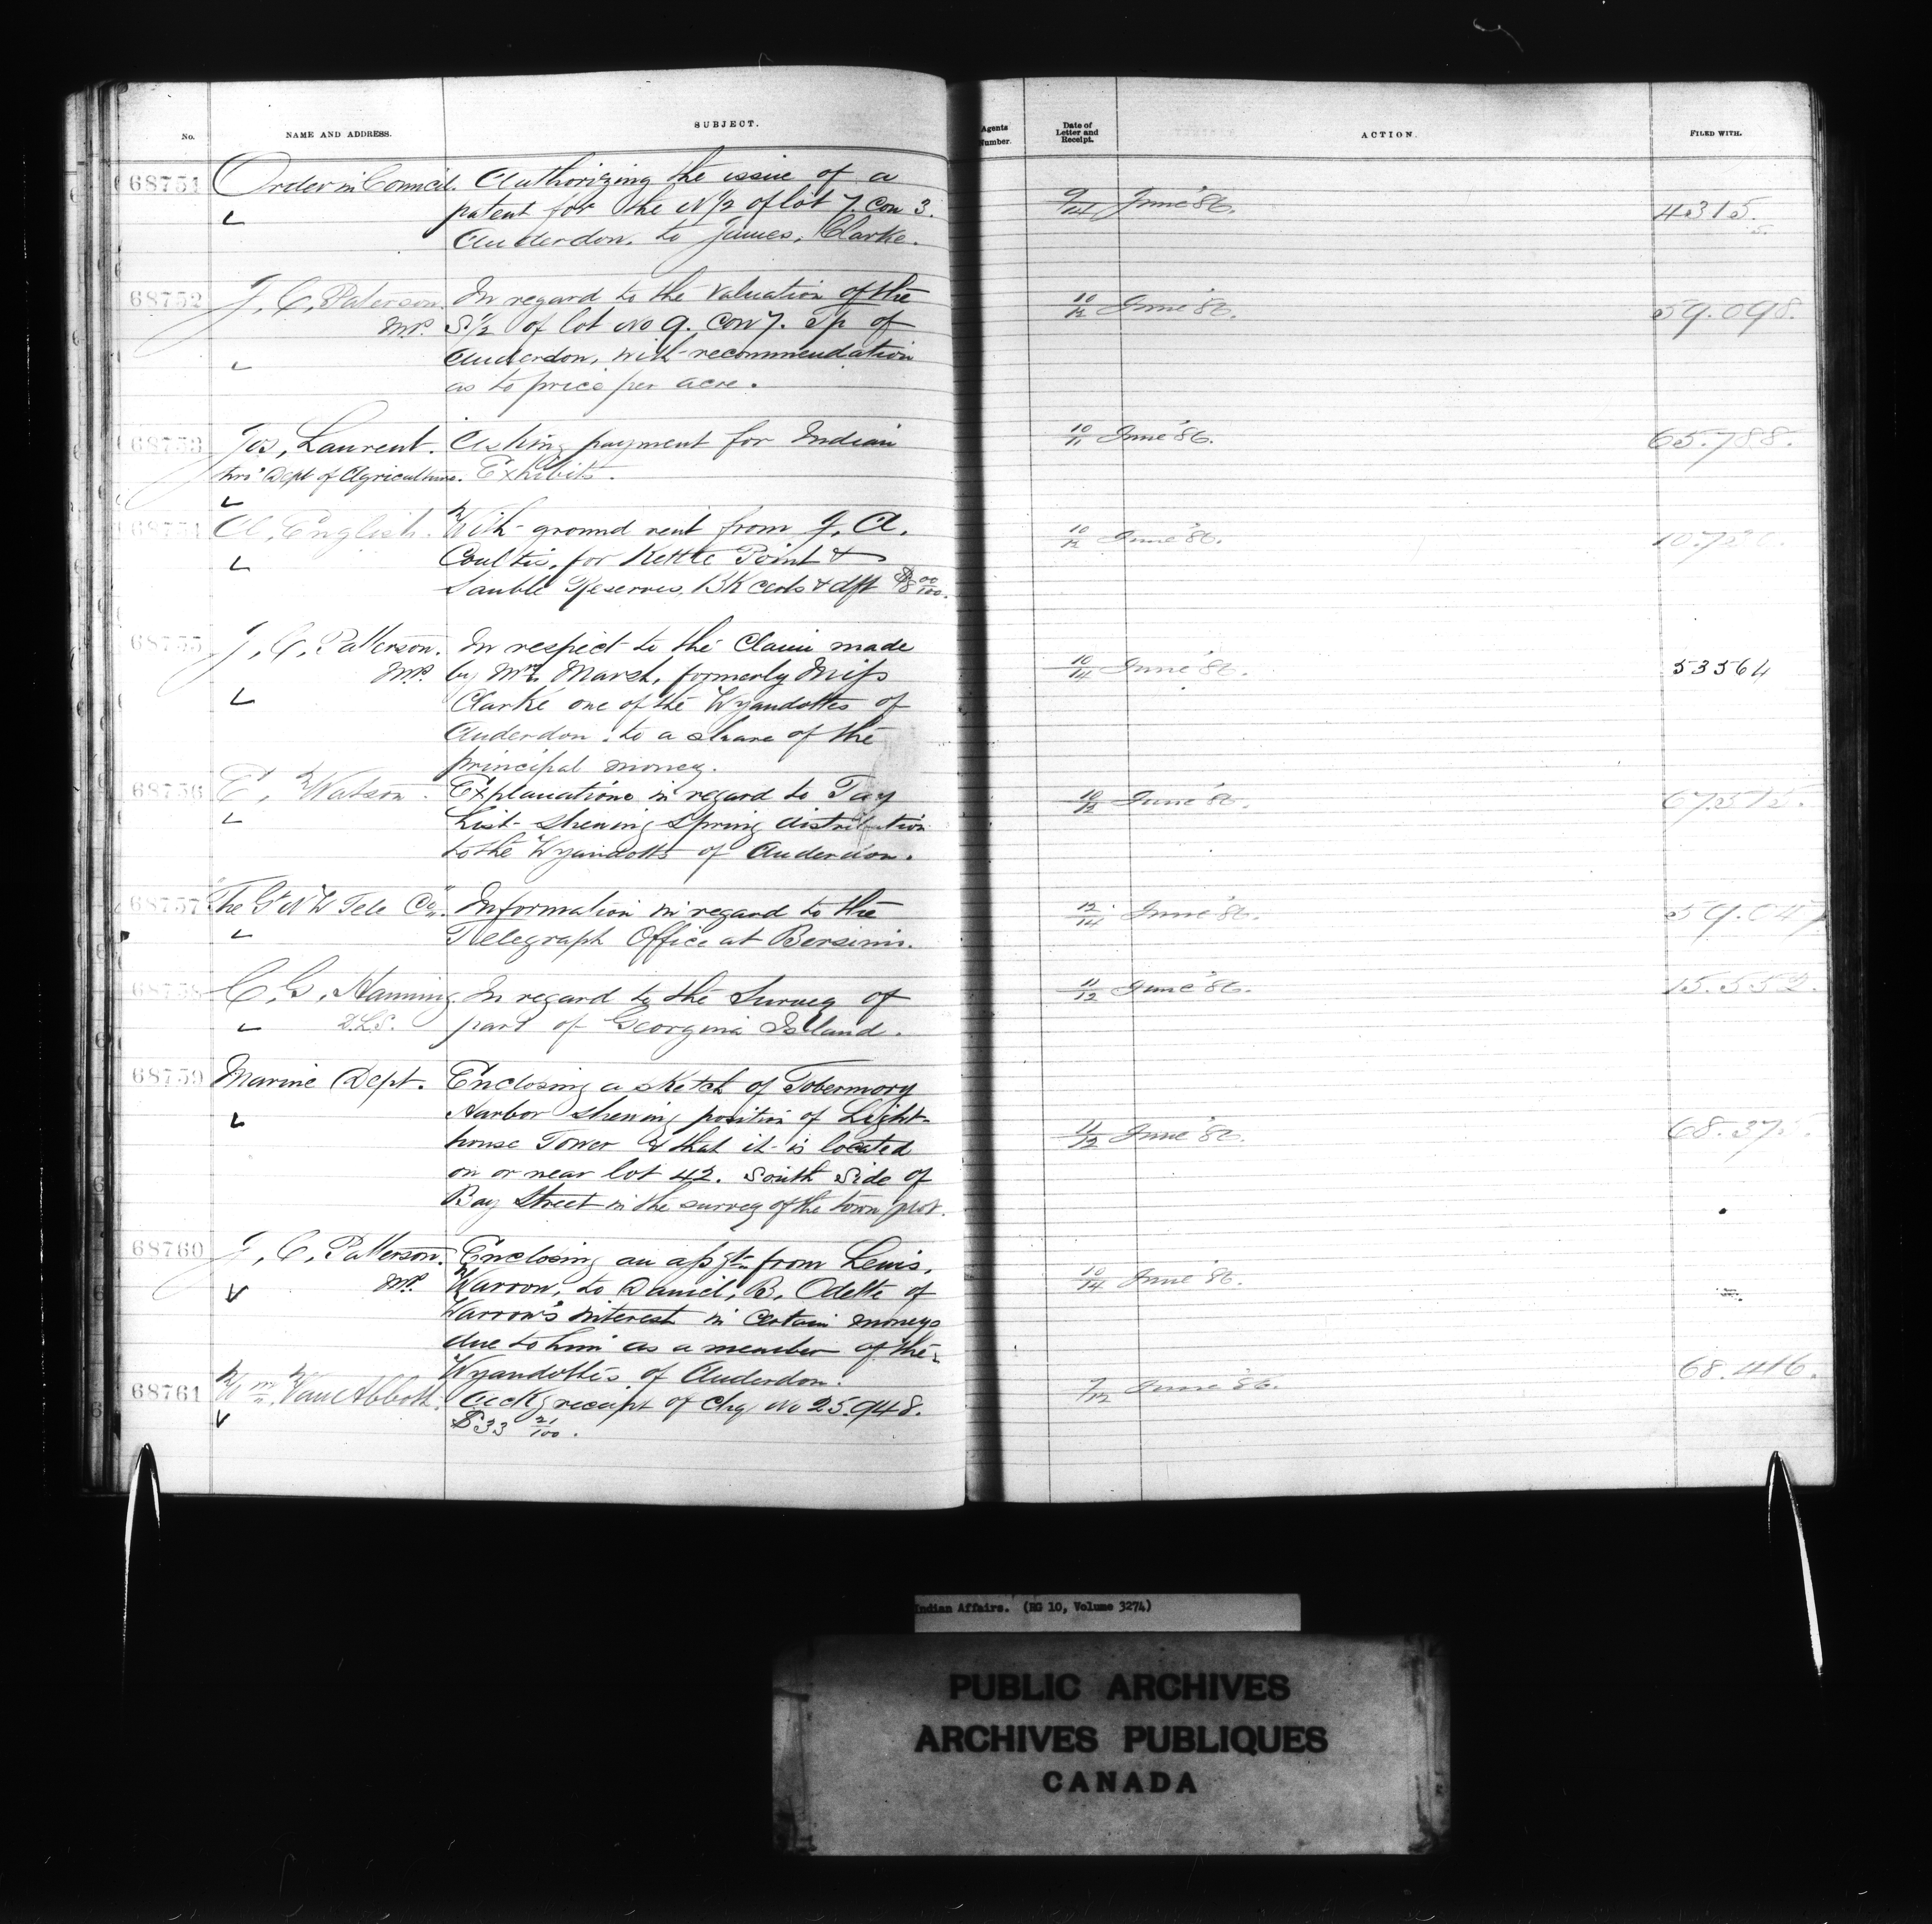 No. NAME AND ADDRESS. SUBJECT. Agents Number. Date of Letter and Receipt. ACTION. FILED WITH.
68751 Order in Council. Authorizing the issue of a
patent for the N½ of lot 7. Con 3. 9/14 June '86. 4315.
Anderdon, to James, Clarke.
68752 J, C, Paterson In regard to the valuation of the 10/12 June '86. 59.098.
M.P. S½ of lot No 9. Con 7. Tp of
Anderdon, with recommendation
as to price per acre.
68753 Jos, Laurent. Asking payment for Indian 10/11 June '86. 65.788.
thro' Dept of Agriculture. Exhibits.
A, English. With ground rent from J, A. 10/12 June '86.
Coultis, for Kettle Point &
Sauble Reserves, BK certs & dft
68755 J, C, Patterson. In respect to the Claim made
M.P. by Mrs. Marsh, formerly Miss 10/14 June '86. 53564
Clarke one of the Wyandottes of
Anderdon. to a share of the
principal money.
68756 E, Watson. Explanations in regard to Pay 10/12 June '86.
List shewing Spring distribution
to the Wyandotts of Anderdon.
68757 The Gt N W Tele Co. Information in regard to the 12/14 June '86. 59.047
Telegraph Office at Bersimis.
68758 C, G, Hanning In regard to the Survey of 11/12 June '86. 15.552.
D.L.S. part of Georgina Island.
68759 Marine Dept. Enclosing a sketch of Tobermory
Harbor shewing position of Light-
house Tower & that it is located 11/12 June '86.
on or near lot 42. South Side of
Bay Street in the survey of the town plot.
68760 J, C, Patterson. Enclosing an assgt from Lewis,
M.P. Warrow, to Daniel, B, Odette of 10/14 June '86.
Warrow's interest in certain moneys
due to him as a member of the
Wyandottes of Anderdon. 68.416.
68761 Wm. Van Abbott. Ackg receipt of chq No 25.948. 7/12 June '86.
$33 21/100.
Indian Affairs. (RG 10, Volume 3274)
PUBLIC ARCHIVES
ARCHIVES PUBLIQUES
CANADA